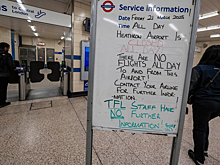 Service Information
Date Friday 21 March 2025
Time All Day
Heathrow Airport is
CLOSED
There Are NO
Flights All Day
To And From This
Airport!
Contact Your Airline
For Further Infor-
mation
TFL Staff Have
NO Further
Information